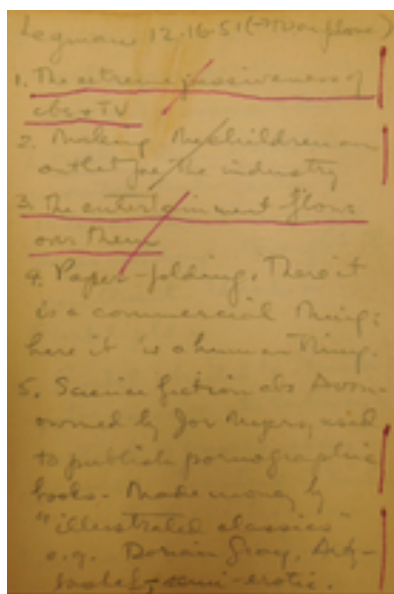 Legman 12.16.51 (→TV on phone)
1. The extreme passiveness of
cbs + TV
2. Making the children an
outlet for the industry
3. The entertainment flows
over them
4. Paper-folding. There it
is a commercial thing;
here it is a human thing.
5. Science fiction cbs Avon-
owned by Joe Myers, used
to publish pornographic
books. Made money by
"illustrated classics"
e.g. Dorian Gray,
semi-erotic.